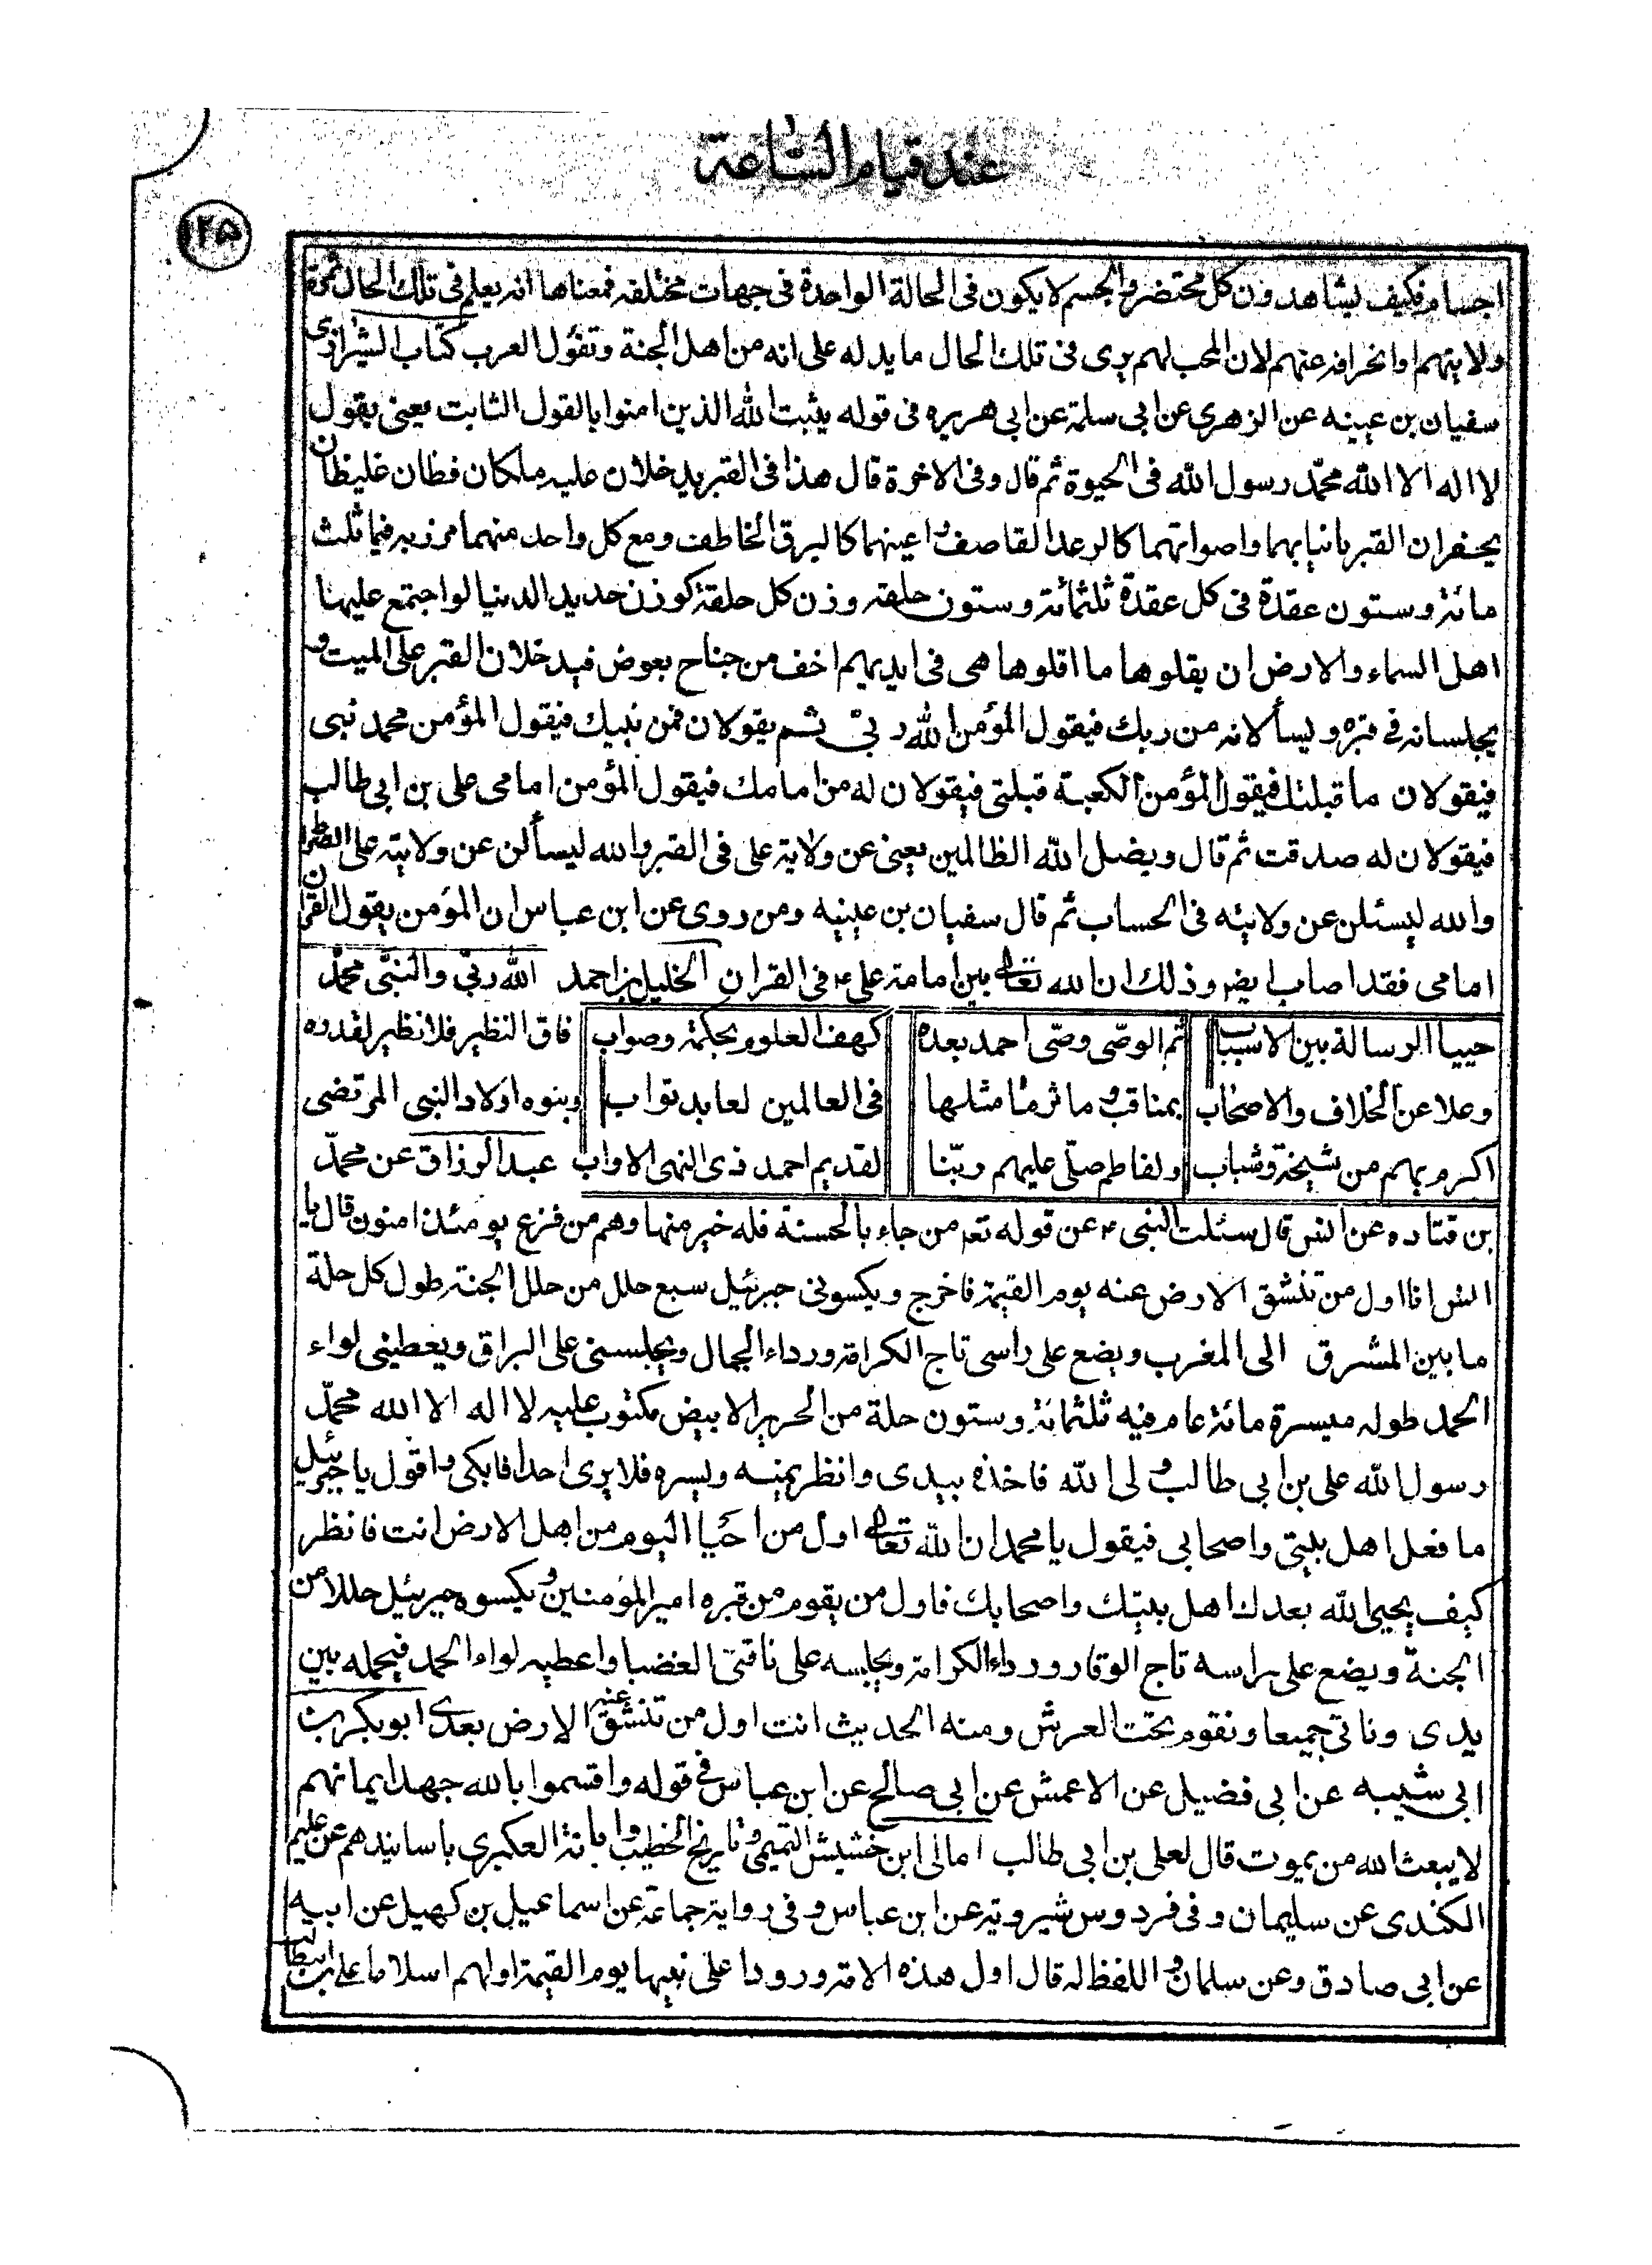 عند قيام الساعة
١٢٥
اجسام فكيف يشاهدون كل محتضر والجسم لا يكون فى الحالة الواحدة فى جهات مختلفه فمعناها انه يعلم فى تلك الحال ثمرة
ولايتهم او انحرافه عنهم لان المحب لهم يرى فى تلك الحال ما يدله على انه من اهل الجنة وتقول العرب كتاب الشيرازى
سفيان بن عيينه عن الزهرى عن ابى سلمة عن ابى هريره فى قوله يثبت الله الذين امنوا بالقول الثابت يعنى يقول
لا اله الا الله محمّد رسول الله فى الحيوة ثم قال وفى الاخرة قال هذا فى القبر يدخلان عليه ملكان فظان غليظان
يحفران القبر بانيابهما واصواتهما كالرعد القاصف واعينهما كالبرق الخاطف ومع كل واحد منهما مرزبه فيها ثلث
مائة وستون عقدة فى كل عقدة ثلثمائة وستون حلقة وزن كل حلقة كوزن حديد الدنيا لو اجتمع عليها
اهل السماء والارض ان يقلوها ما اقلوها هى فى ايديهم اخف من جناح بعوض فيدخلان القبر على الميت و
يجلسانه فى قبره ويسألانه من ربك فيقول المؤمن الله ربى ثم يقولان فمن نبيك فيقول المؤمن محمد نبى
فيقولان ما قبلتك فيقول المؤمن الكعبة قبلتى فيقولان له من امامك فيقول المؤمن امامى على بن ابى طالب
فيقولان له صدقت ثم قال ويضل الله الظالمين يعنى عن ولاية على فى القبر والله ليسألن عن ولايته على الصراط
والله ليسئلن عن ولايته فى الحساب ثم قال سفيان بن عيينه ومن روى عن ابن عباس ان المؤمن يقول القران
امامى فقد اصاب ايضا وذلك ان الله تعالى بين امامة على ع فى القران الخليل بن احمد الله ربى والنبى محمّد
حييا الرسالة بين الاسباب ثم الوصّى وصّى احمد بعده كهف العلوم بحكمة وصواب فاق النظير فلا نظير لقدره
وعلا عن الخلاف والاصحاب بمناقب وماثر ما مثلها فى العالمين لعابد تواب وبنوه اولاد النبى المرتضى
اكرم بهم من شيخة وشباب ولفاطم صلّى عليهم ربّنا لقديم احمد ذى النهى الاواب عبد الرزاق عن محمّد
بن قتاده عن انس قال سئلت النبى عن قوله تع من جاء بالحسنة فله خير منها وهم من فزع يومئذ امنون قال يا
انس انا اول من تنشق الارض عنه يوم القيمة فاخرج ويكسونى جبرئيل سبع حلل من حلل الجنة طول كل حلة
ما بين المشرق الى المغرب ويضع على راسى تاج الكرامة ورداء الجمال ويجلسنى على البراق ويعطينى لواء
الحمد طوله مسيرة مائة عام فيه ثلثمائة وستون حلة من الحرير الابيض مكتوب عليه لا اله الا الله محمّد
رسول الله على بن ابى طالب ولى الله فاخذه بيدى وانظر يمنه ويسره فلا يرى احدا فابكى واقول يا جبرئيل
ما فعل اهل بيتى واصحابى فيقول يا محمد ان الله تعالى اول من احيا اليوم من اهل الارض انت فانظر
كيف يحيى الله بعدك اهل بيتك واصحابك فاول من يقوم من قبره امير المؤمنين ويكسوه جبرئيل حللا من
الجنة ويضع على راسه تاج الوقار ورداء الكرامة ويجلسه على ناقتى العضبا واعطيه لواء الحمد فيحمله بين
يدى وناتى جميعا ونقوم تحت العرش ومنه الحديث انت اول من تنشق عنه الارض بعدى ابو بكر بن
ابى شيبه عن ابى فضيل عن الاعمش عن ابى صالح عن ابن عباس فى قوله واقسموا بالله جهد ايمانهم
لا يبعث الله من يموت قال لعلى بن ابى طالب امالى ابن خشيش التميمى وتاريخ الخطيب وابانة العكبرى باسانيدهم عن عليم
الكندى عن سليمان وفى فردوس شيرويه عن ابن عباس وفى رواية جماعة عن اسماعيل بن كهيل عن ابيه
عن ابى صادق وعن سلمان واللفظ له قال اول هذه الامة ورودا على نبيها يوم القيمة اولهم اسلاما على بن ابيطالب